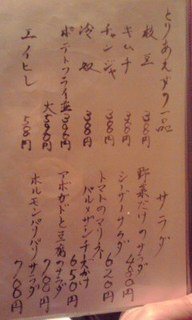 とりあえずの一品
枝豆 380円
キムチ 380円
チャンジャ 380円
冷奴 380円
ポテトフライ 380円
エイヒレ 580円
サラダ
野菜だけのサラダ 480円
シーザーサラダ 620円
トマトのマリネ
650円
アボカドと豆腐のサラダ 780円
ホルモンパリパリサラダ 780円